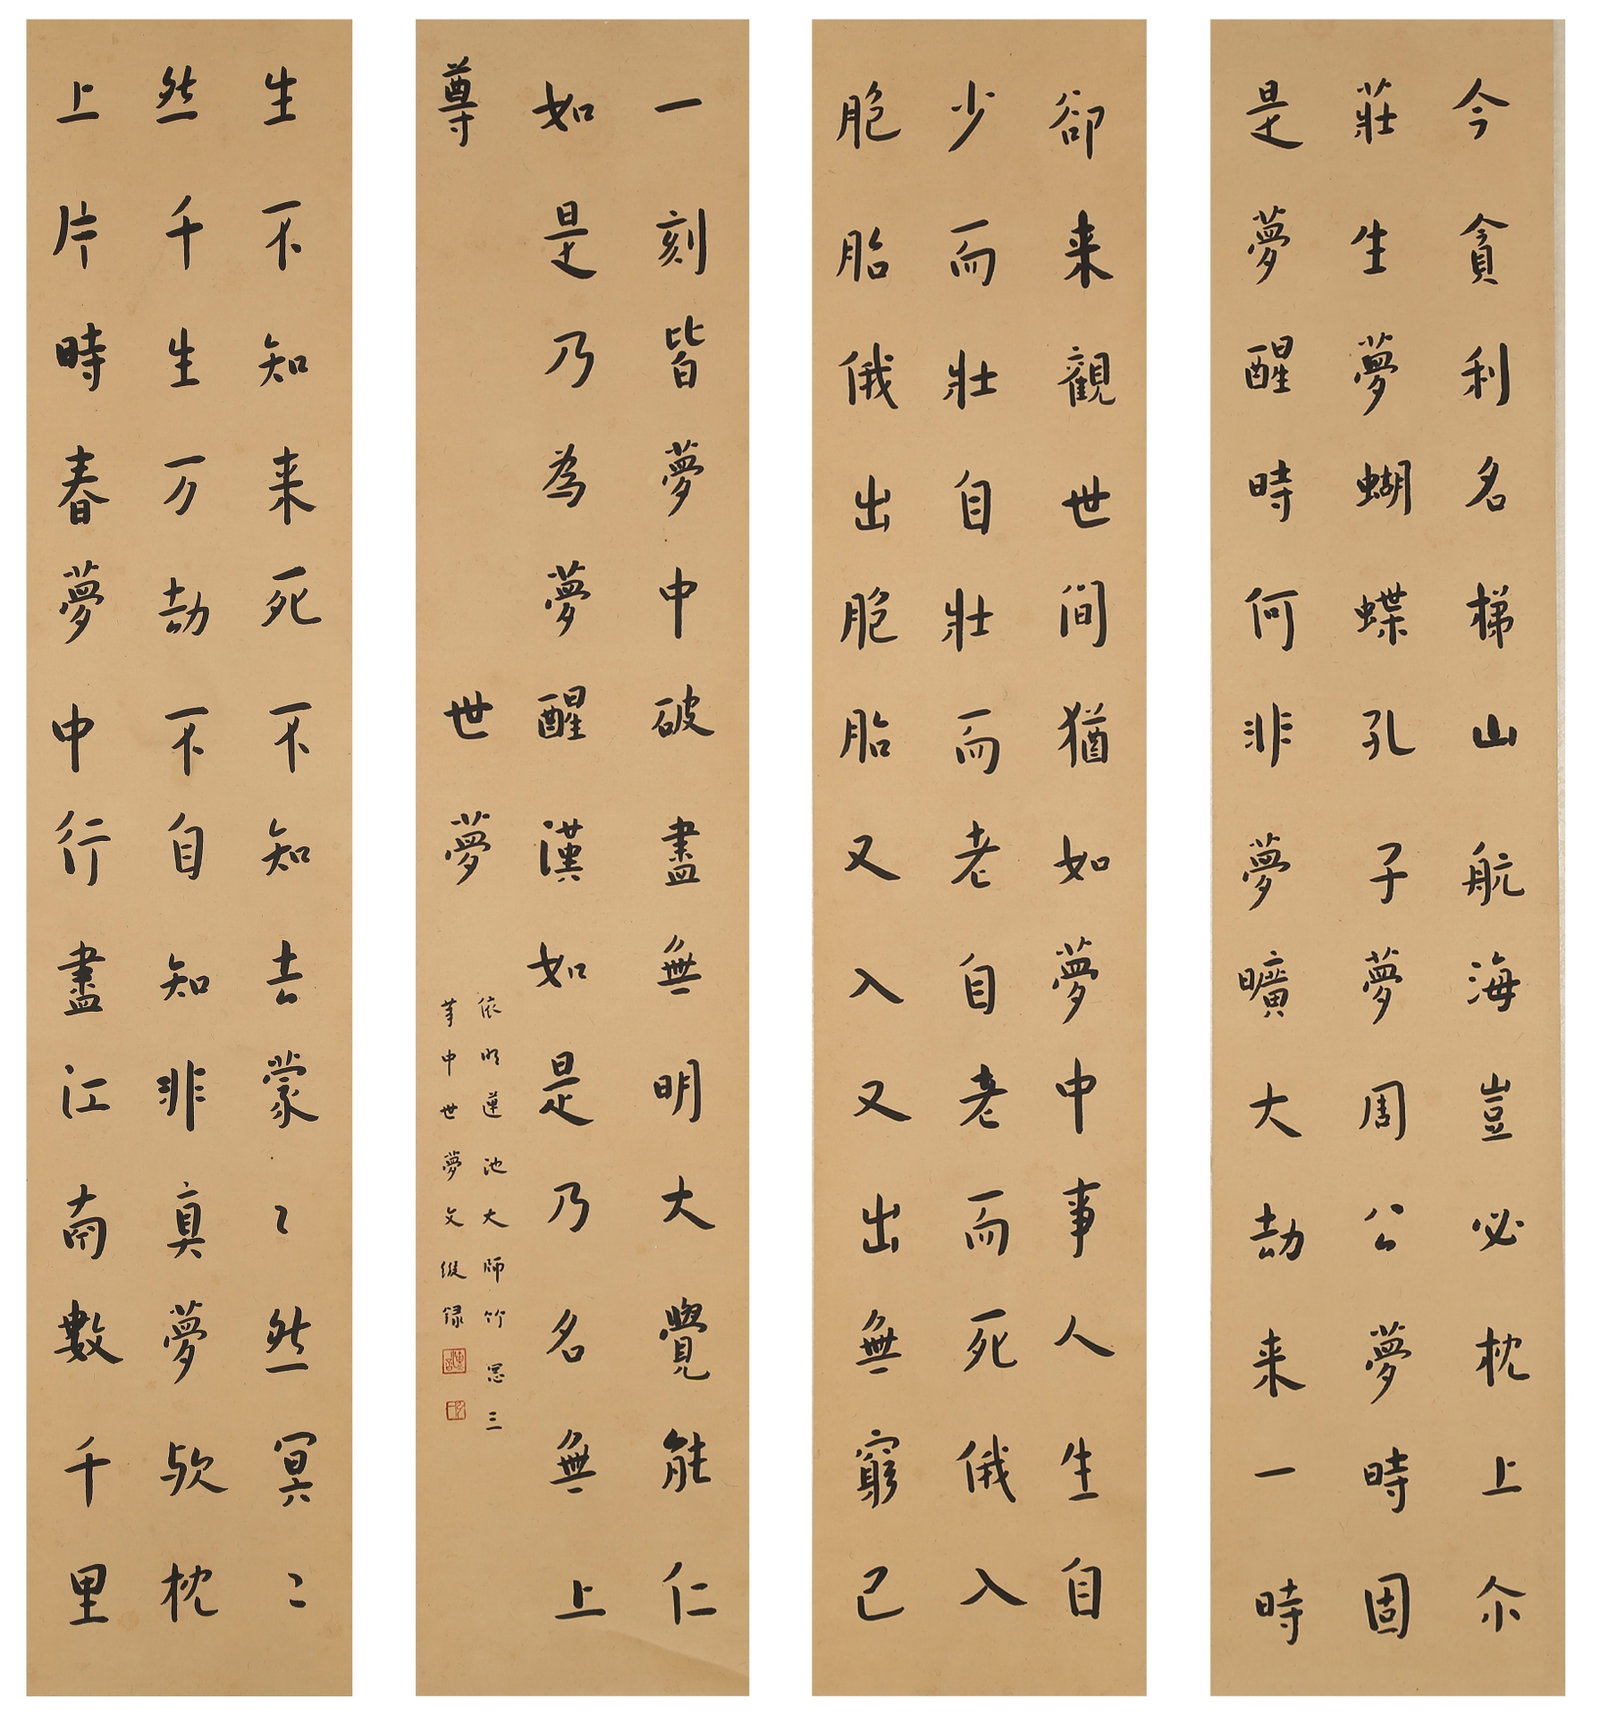 卻来觀世間猶如夢中事人生自
少而壯自壯而老自老而死俄入
胞胎俄出胞胎又入又出無窮已
生不知来死不知去蒙〻然冥〻
然千生万劫不自知非真夢歟枕
上片時春夢中行盡江南數千里
今貪利名梯山航海豈必枕上尒
莊生夢蝴蝶孔子夢周公夢時固
是夢醒時何非夢曠大劫来一時
一刻皆夢中破盡無明大覺能仁
如是乃為夢醒漢如是乃名無上
尊
世夢
依明蓮池大師竹窓三
筆中世夢文綴録